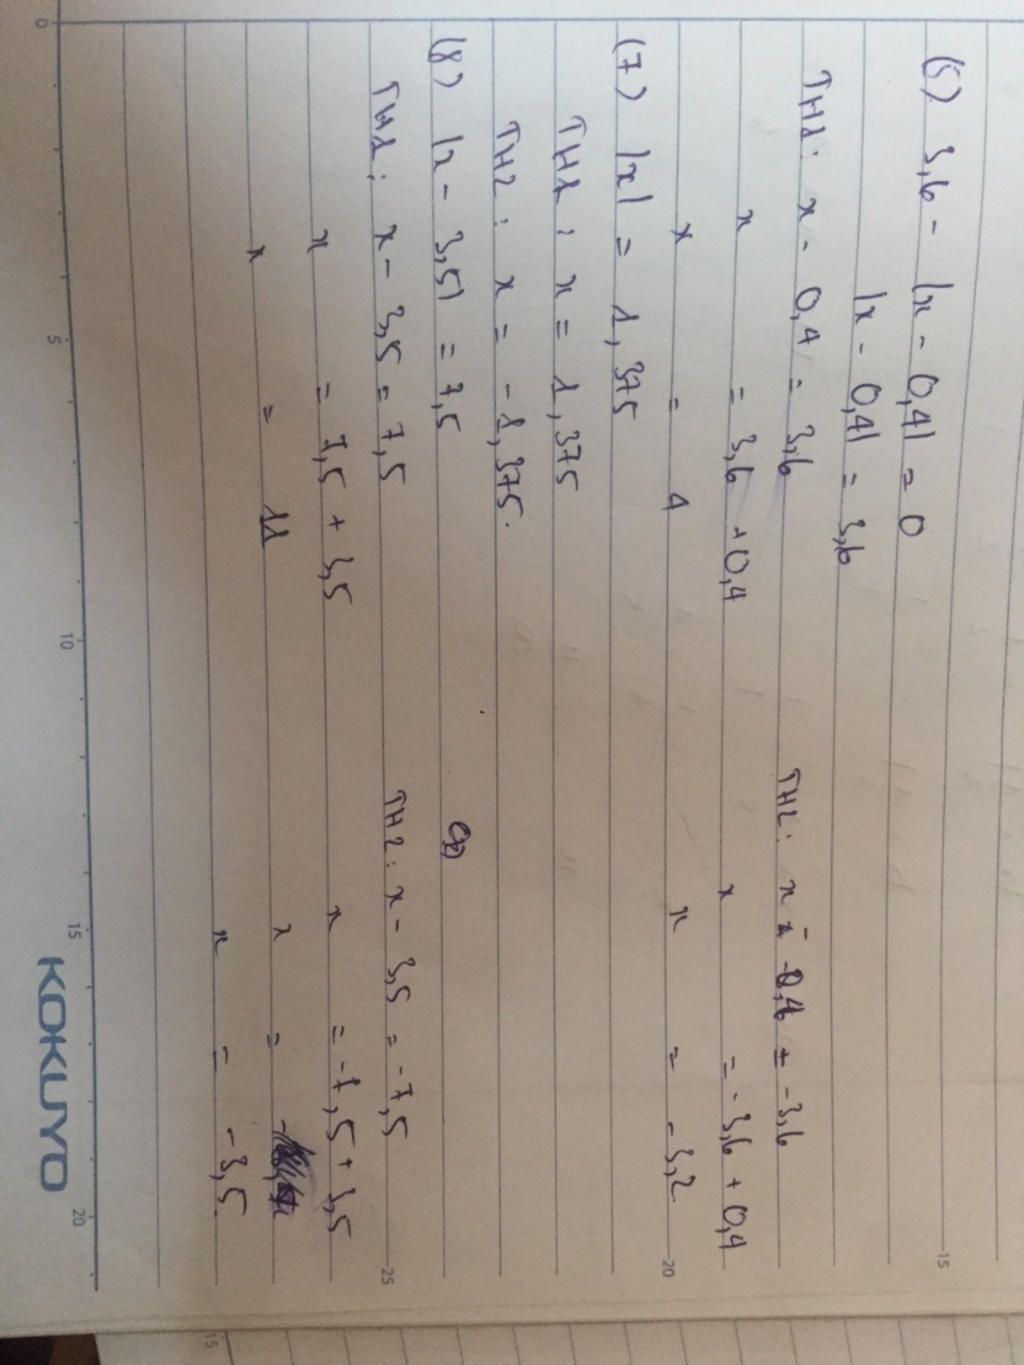 (5) 3,6 - |x - 0,4| = 0
|x - 0,4| = 3,6
TH1: x - 0,4 = 3,6
TH2: x - 0,4 = -3,6
x = 3,6 + 0,4
x = -3,6 + 0,4
x = 4
x = -3,2
(7) |x| = 1,375
TH1: x = 1,375
TH2: x = -1,375.
(8) |x - 3,5| = 7,5
TH1: x - 3,5 = 7,5
TH2: x - 3,5 = -7,5
x = 7,5 + 3,5
x = -7,5 + 3,5
x = 11
x =
x = -3,5
0
5
10
15
20
KOKUYO
15
20
25
15